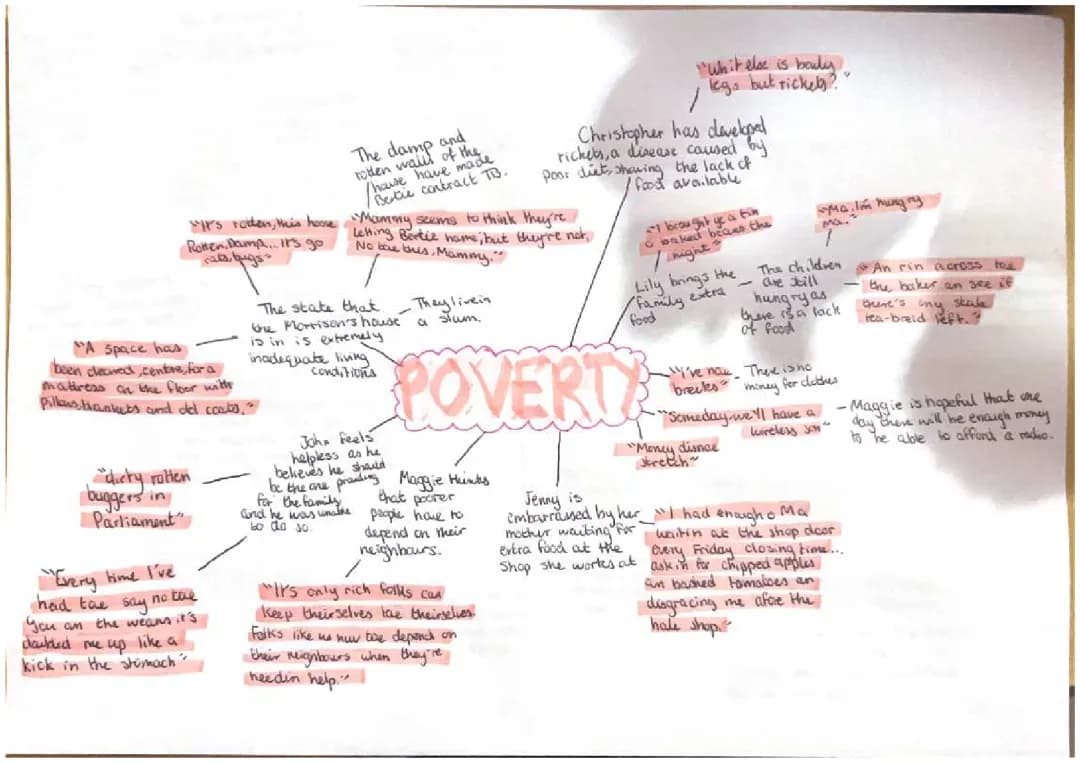 "Whit else is bandy
legs but rickets?"
Christopher has developed
rickets, a disease caused by
poor diet, showing the lack of
food available
The damp and
rotten walls of the
house have made
Bertie contract TB.
"It's rotten, this hoose
Rotten. Damp... It's go
rats, bugs"
"Mammy seems to think they're
letting Bertie hame, but they're not.
No tae this, Mammy."
The state that
the Morrison's house
is in is extremely
inadequate living
conditions
They live in
a slum.
"A space has
been cleared, centre, for a
mattress on the floor with
pillows, blankets and old coats."
"I brought ye a tin
o baked beans the
night"
Lily brings the
family extra
food
The children
are still
hungry as
there is a lack
of food
"Ma, I'm hungry
ma.."
"An rin across tae
the baker an see if
there's any stale
tea-breid left."
POVERTY
"I've nae
breeks"
There is no
money for clothes
"Someday-we'll have a
wireless son"
Maggie is hopeful that one
day there will be enough money
to be able to afford a radio.
"Money disnae
stretch"
John feels
helpless as he
believes he should
be the one providing
for the family
and he was unable
to do so.
"dirty rotten
buggers in
Parliament"
"Every time I've
had tae say no tae
you an the weans it's
doubled me up like a
kick in the stomach"
Maggie thinks
that poorer
people have to
depend on their
neighbours.
"It's only rich folks can
keep theirselves tae theirselves.
Folks like us huv tae depend on
their neighbours when they're
needin help."
Jenny is
embarrassed by her
mother waiting for
extra food at the
shop she works at
"I had enough o Ma
waitin at the shop door
every Friday closing time...
askin for chipped apples
an bashed tomatoes an
disgracing me afore the
hale shop."